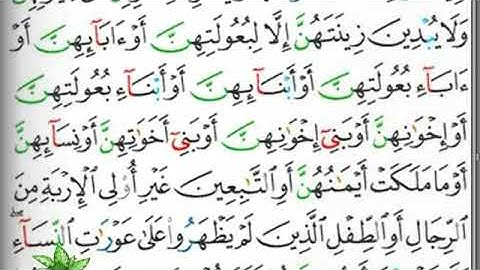 وَلَا يُبْدِينَ زِينَتَهُنَّ إِلَّا لِبُعُولَتِهِنَّ أَوْ ءَابَآئِهِنَّ أَوْ
ءَابَآءِ بُعُولَتِهِنَّ أَوْ أَبْنَآئِهِنَّ أَوْ أَبْنَآءِ بُعُولَتِهِنَّ
أَوْ إِخْوَٰنِهِنَّ أَوْ بَنِىٓ إِخْوَٰنِهِنَّ أَوْ بَنِىٓ أَخَوَٰتِهِنَّ أَوْ نِسَآئِهِنَّ
أَوْ مَا مَلَكَتْ أَيْمَٰنُهُنَّ أَوِ ٱلتَّٰبِعِينَ غَيْرِ أُو۟لِى ٱلْإِرْبَةِ مِنَ
ٱلرِّجَالِ أَوِ ٱلطِّفْلِ ٱلَّذِينَ لَمْ يَظْهَرُوا۟ عَلَىٰ عَوْرَٰتِ ٱلنِّسَآءِ ۖ